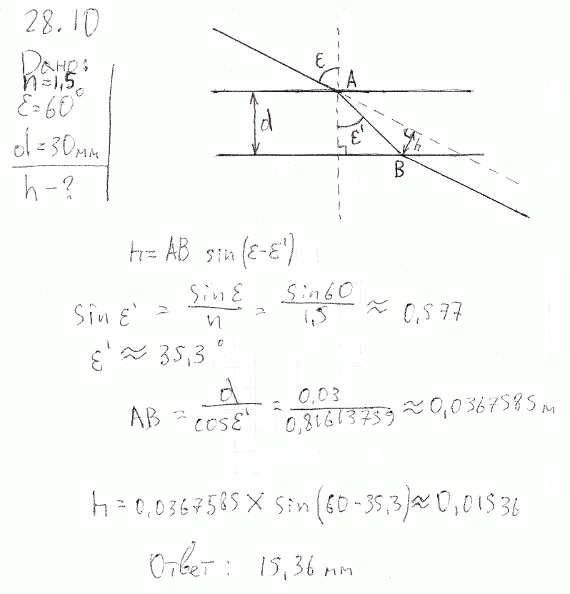 28.10
Дано:
n=1,5
ε=60°
d=30мм
h-?
ε
A
d
ε'
h
B
h=AB sin(ε-ε')
sin ε' = sinε/n = sin60/1,5 ≈ 0,577
ε' ≈ 35,3°
AB = d/cosε' = 0,03/0,81613759 ≈ 0,0367585 м
h = 0,0367585 × sin(60-35,3) ≈ 0,01536
Ответ: 15,36 мм